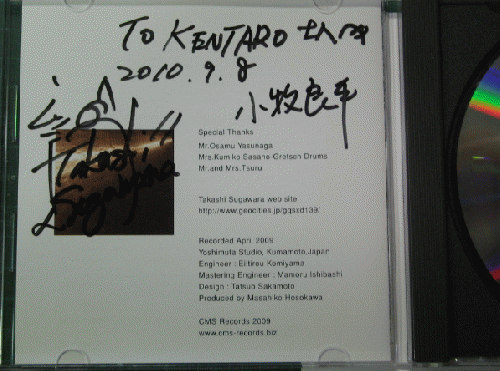 TO KENTARO さん江
2010.9.8
小牧良平
Takashi
Sugawara
Special Thanks
Mr.Osamu Yasunaga
Mrs.Kumiko Sasano-Gretsch Drums
Mr.and Mrs.Tsuru
Takashi Sugawara web site
http://www.geocities.jp/gqsxd139/
Recorded April 2009
Yoshimuta Studio, Kumamoto,Japan
Engineer : Eitireu Komiyama
Mastering Engineer : Mamoru Ishibashi
Design : Tatsuo Sakamoto
Produced by Masahiko Hosokawa
CMS Records 2009
www.cms-records.biz